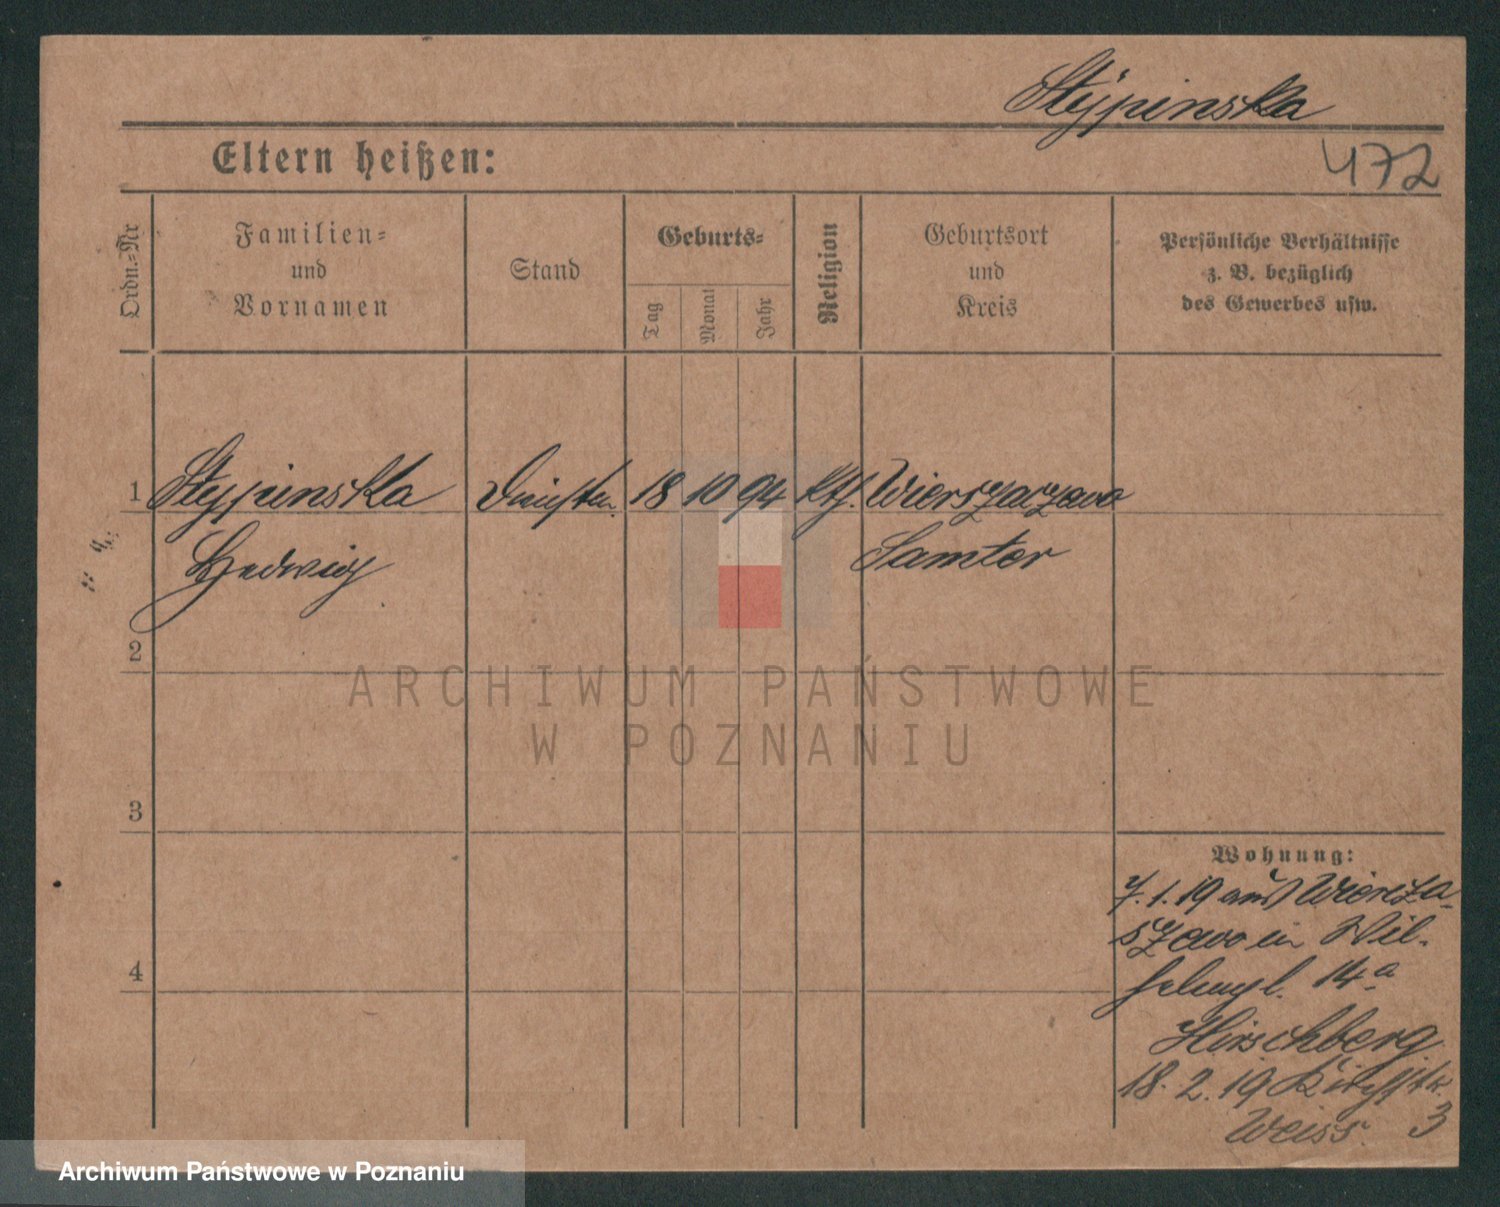 Stypinska
472
Eltern heißen:
Ordn.-Nr
Familien-
und
Vornamen
Stand
Geburts-
Tag
Monat
Jahr
Religion
Geburtsort
und
Kreis
Persönliche Verhältnisse
z. B. bezüglich
des Gewerbes usw.
1 Stypinska 18 10 94 Kth.
Hedwig Samter
2
3
4
Wohnung:
7. 1. 19 aus
in Wil-
helmpl. 14a
Hirschberg
18. 2. 19
Weiss. 3
ARCHIWUM PAŃSTWOWE
W POZNANIU
Archiwum Państwowe w Poznaniu